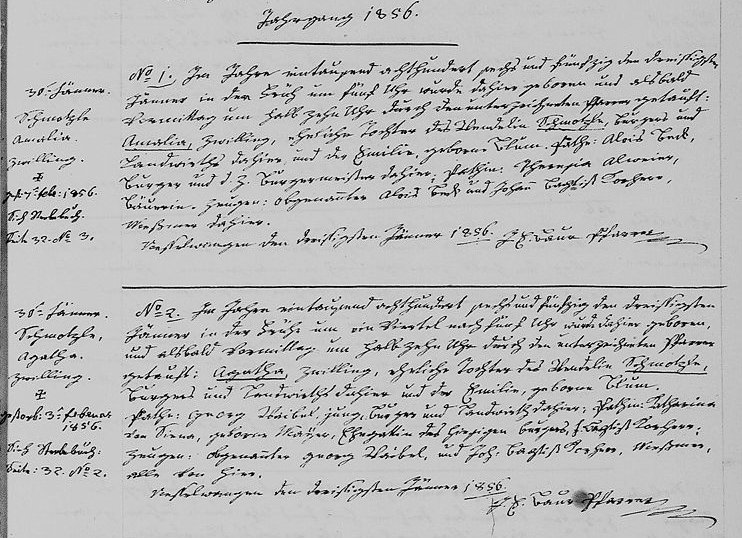 Jahrgang 1856.
30t Jänner.
Schmotzle
Amalia,
Zwilling.
✝
gest: 7. Feb: 1856.
Sieh Sterbbuch
Seite 32. No 3.
No 1. Im Jahre eintausend achthundert sechs und fünfzig den dreißigsten
Jänner in der Früh um fünf Uhr wurde dahier geboren und alsbald
Vormittag um halb zehn Uhr durch den unterzeichneten Pfarrer getauft:
Amalia, Zwilling, eheliche Tochter des Wendelin Schmotzle, Bürgers und
Landwirths dahier und der Emilie, geborne Blum. Pathe: Alois Beck,
Bürger und d. Z. Bürgermeister dahier; Pathin: Theresia
Bäuerin. Zeugen: obgenannter Alois Beck und Johan Baptist
Meßmer dahier.
den dreißigsten Jänner 1856. Baur Pfarrer
30t Jänner.
Schmotzle,
Agatha.
Zwilling.
✝
gestorb: 3t Febr
1856.
Sieh Sterbbuch:
Seite: 32. No 2.
No 2. Im Jahre eintausend achthundert sechs und fünfzig den dreißigsten
Jänner in der Frühe um ein Viertel nach fünf Uhr wurde dahier geboren,
und alsbald Vormittag um halb zehn Uhr durch den unterzeichneten Pfarrer
getauft: Agatha, Zwilling, eheliche Tochter des Wendelin Schmotzle,
Bürgers und Landwirths dahier und der Emilie, geborne Blum.
Pathe: Georg Waibel, jung, Bürger und Landwirth dahier; Pathin: Katharina
von Siena, geborne Mayer, Ehegattin des hiesigen Bürgers, Baptist
Zeugen: obgenannter Georg Waibel, und Joh: Baptist Meßmer,
alle von hier.
den dreißigsten Jänner 1856.
Baur Pfarrer